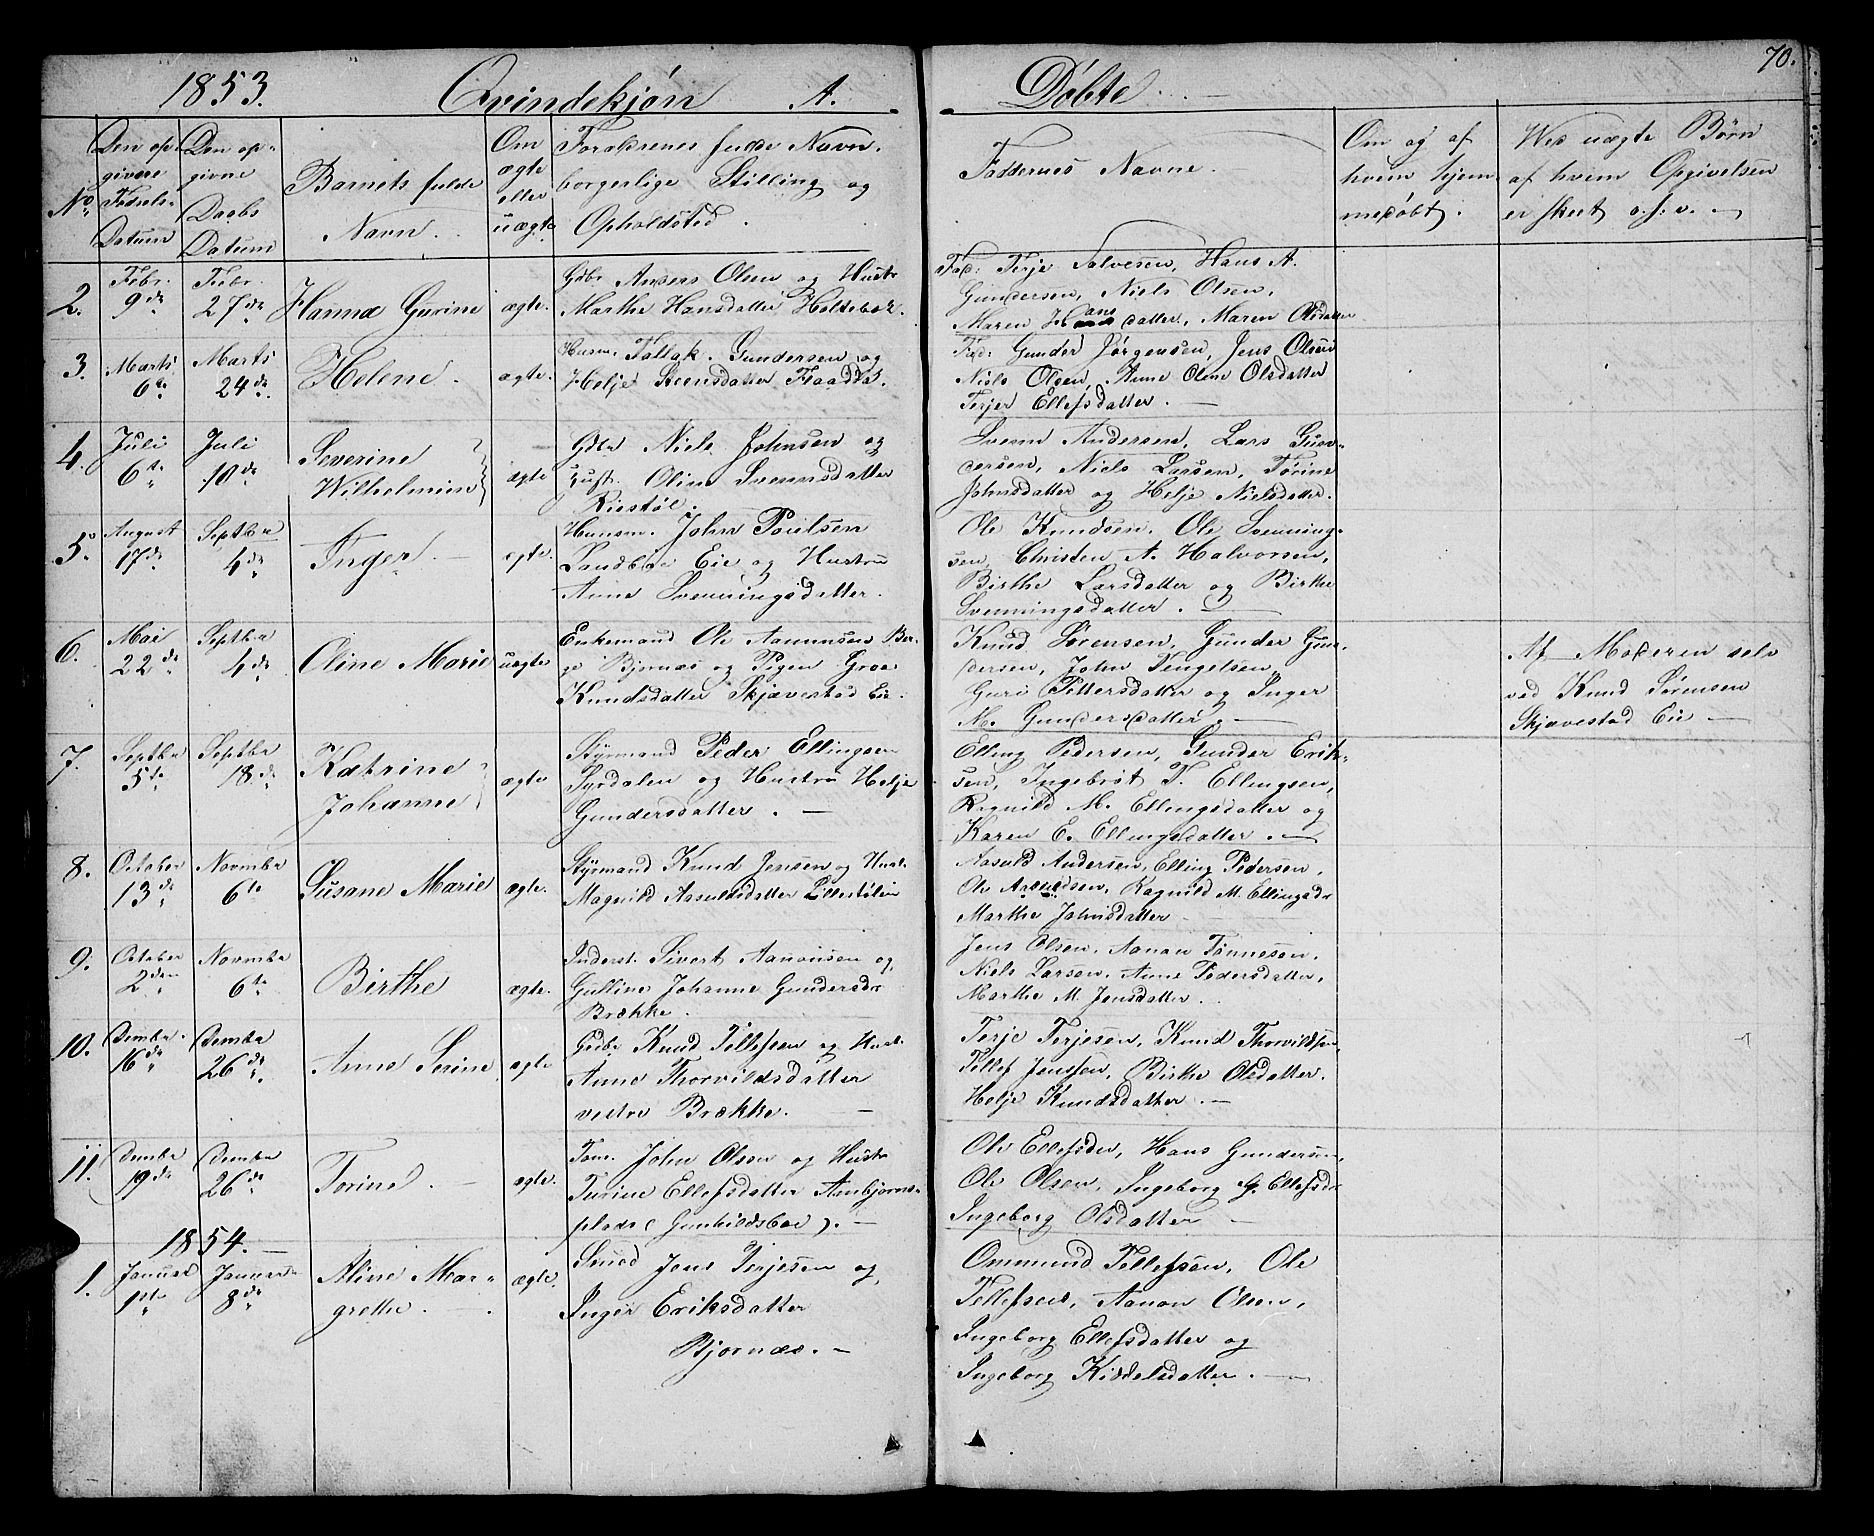 1853. Qvindekjøn A. Døbte 70.
No.
Den op-
givne
Fødsels-
Datum
Den op-
givne
Daabs
Datum
Barnets fulde
Navn.
Om
ægte
eller
uægte
Forældrenes fulde Navn.
borgerlige Stilling og
Opholdsted.
Faddernes Navne.
Om og af
hvem hjem-
medøbt.
Ved uægte Børn
af hvem Opgivelsen
er skeet o.s.v.
2.
Febr.
9de
Febr.
27de
Hanna Gurine
ægte.
Gdbr Anders Olsen og Hustr
Marthe Hansdatter Holtebæk.
Fad: Terje Salvesen, Hans A.
Gundersen, Niels Olsen,
Maren Hansdatter, Maren Olsdatter
3.
Marts
6te
Marts
24de
Helene.
ægte.
Husm. Tallak Gundersen og
Helje Steensdatter
Fad: Gunder Jørgensen, Jens Olsen
Niels Olsen, Anne Oline Olsdatter
Terjer Ellefsdatter.
4.
Juli
6te
Juli
10de
Severine
Wilhelmine
ægte
Gdbr Niels Johnsen og
Hust. Oline Svennsdatter
Riestøl.
Svenn Andersen, Lars Gun-
dersen, Niels Larsen, Tørine
Johnsdatter og Helje Nielsdatter.
5.
August
17de
Septbr
4de
Inger.
ægte.
Huusm. John Poulsen
Sandbøe Eie og Hustru
Anne Svenningsdatter.
Ole Knudsen, Ole Svenning-
sen, Christen A. Halvorsen,
Birthe Larsdatter og Birthe
Svenningsdatter.
6.
Mai
22de
Septbr
4de
Oline Marie
uægte
Enkemand Ole Aanonsen Ber-
ge Bjornæs og Pigen Groe
Knudsdatter Skjævestad Eie.
Knud Sørensen, Gunder Gun-
dersen, John Tengelsen,
Guri Pettersdatter og Inger
M. Gundersdatter.
Af Moderen selv
ved Knud Sørensen
Skjævestad Eie
7.
Septbr
5te
Septbr
18de
Katrine
Johanne
ægte
Styrmand Peder Ellingsen
Syrdalen og Hustru Helje
Gundersdatter.
Elling Pedersen, Gunder Erik-
sen, Ingebrøt T. Ellingsen,
Ragnild M. Ellingsdatter og
Karen E. Ellingsdatter.
8.
October
13de
Novmbr
6te
Susane Marie
ægte.
Styrmand Knud Jensen og Hust.
Magnild Aasuldsdatter Lillestølen
Aasuld Andersen, Elling Pedersen,
Ole Arendsen, Ragnild M. Ellingsdr
Marthe Johnsdatter
9.
October
2den
Novmbr
6te
Birthe
ægte.
Inderst. Sivert Aanonsen og
Gulline Johanne Gundersdr
Brække.
Jens Olsen, Aanon Tønnesen,
Niels Larsen, Anne Pedersdatter,
Marthe M. Jensdatter.
10.
Dembr
16de
Dembr
26de
Anne Serine
ægte
Gdbr Knud Tellefsen og Hust.
Anne Thorvildsdatter
vestre Brække.
Terje Terjesen, Knud Thorvildsen,
Tellef Jenssen, Birthe Olsdatter.
Helje Knudsdatter.
11.
Dembr
19de
Dembr
26de
Torine.
ægte.
Tøm. John Olsen og Hustr
Turine Ellefsdatter Aanbjørns-
plads (Gunhildsboe).
Ole Ellefsen, Hans Gundersen,
Ole Olsen, Ingeborg G. Ellefsdr
Ingeborg Olsdatter
1854.
1.
Januar
1ste
Januar
8de
Aline Mar-
grethe.
ægte.
Smed Jens Terjesen og,
Inger Eriksdatter
Bjornæs.
Ommund Tellefsen, Ole
Tellefsen, Aanon Olsen,
Ingeborg Ellefsdatter og
Ingeborg Kiddelsdatter.